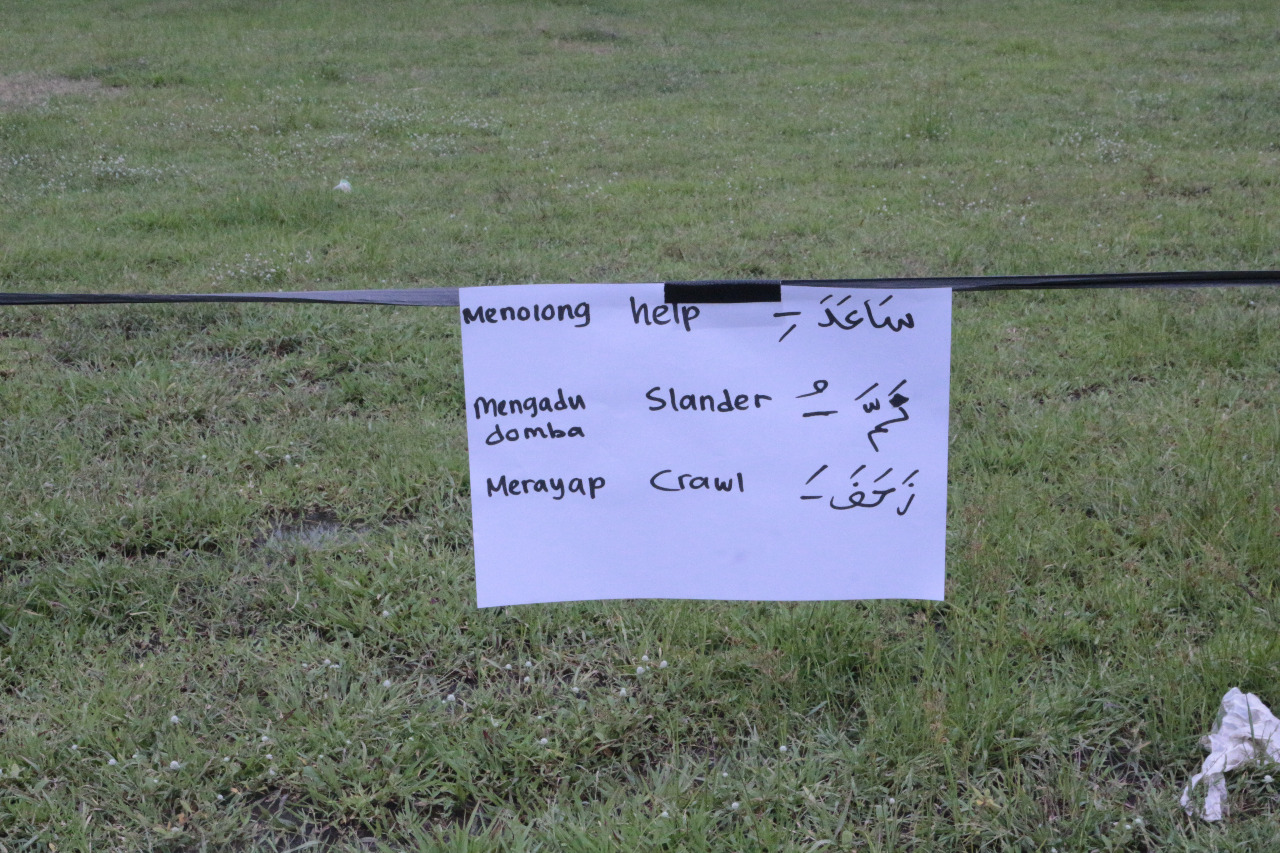 Menolong help سَاعَدَ -ِ
Mengadu Slander نَمَّ -ُ
domba
Merayap Crawl زَحَفَ -َ